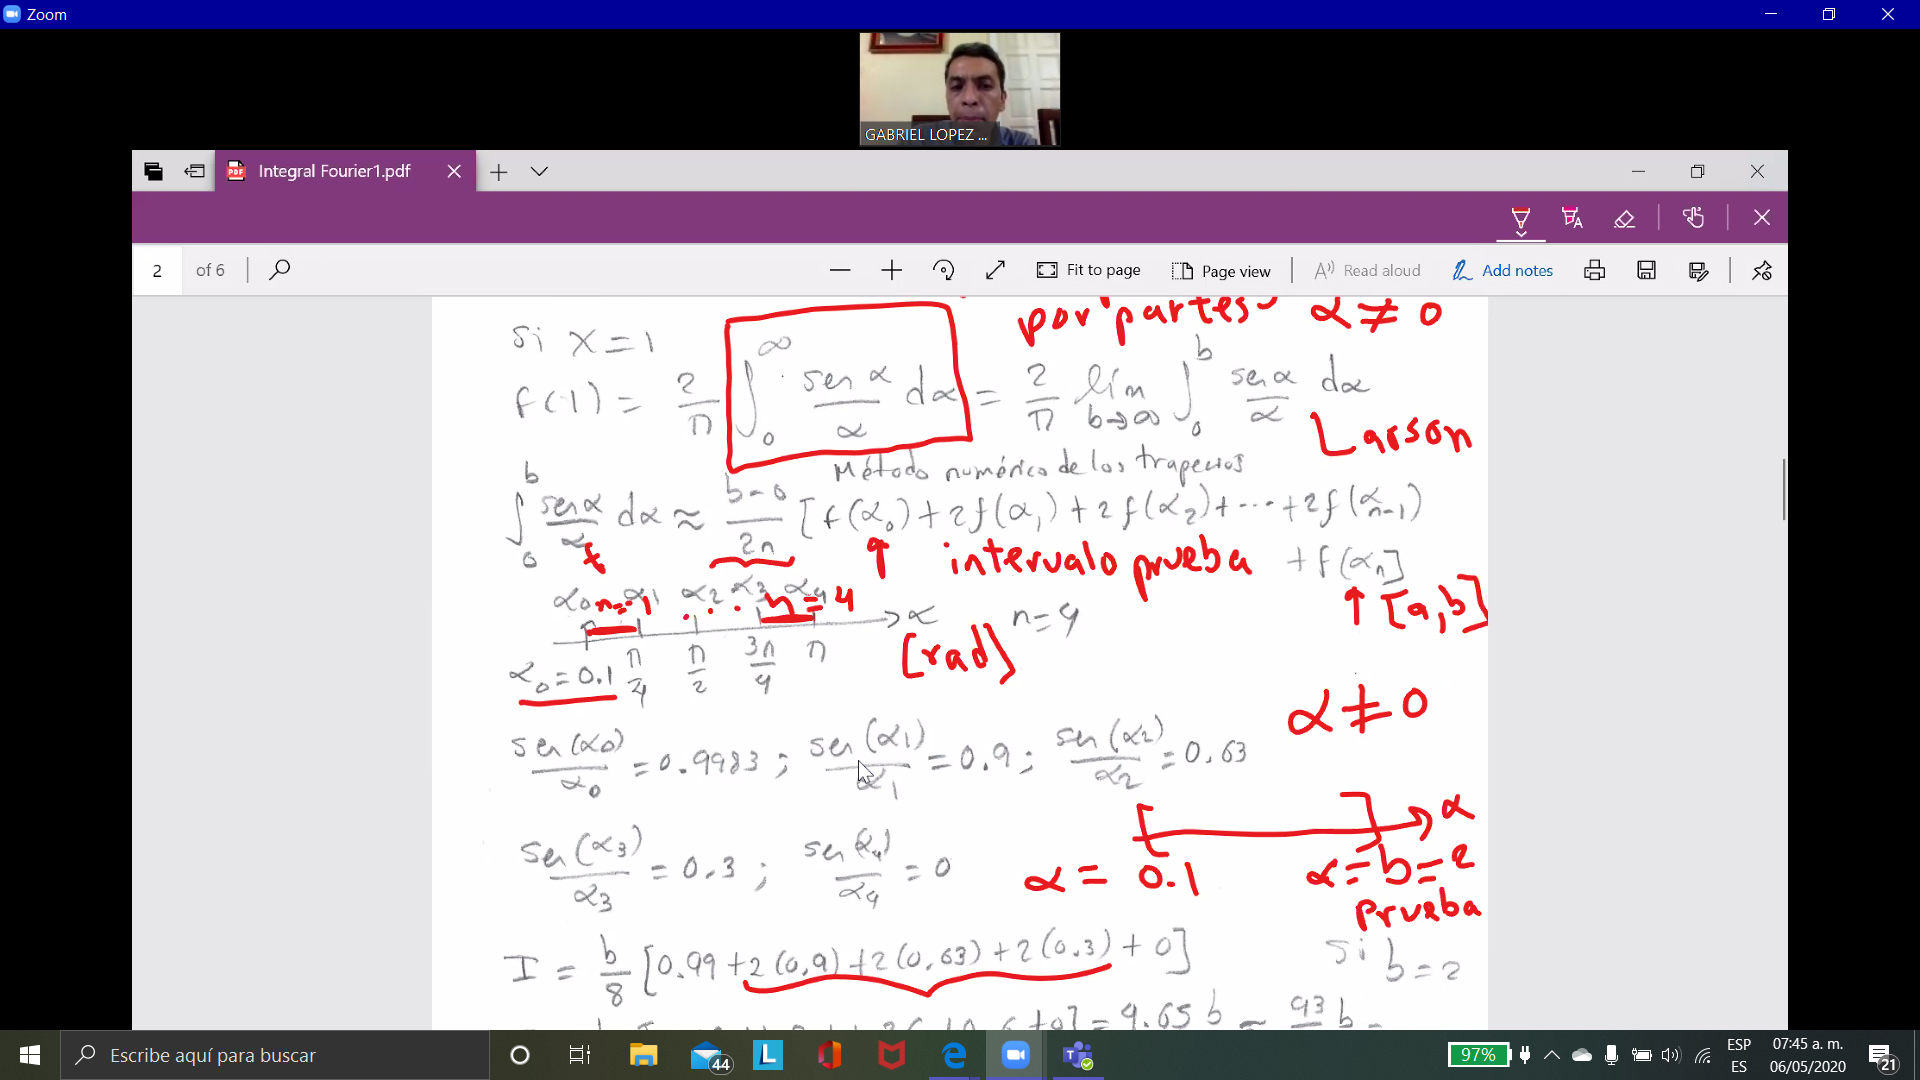 Zoom
GABRIEL LOPEZ ...
Integral Fourier1.pdf
2 of 6
Fit to page
Page view
Read aloud
Add notes
por partes α ≠ 0
Si x = 1
f(1) = 2/π ∫₀^∞ sen α/α dα = 2/π lím b→∞ ∫₀^b sen α/α dα
Larson
Método numérico de los trapecios
∫₀^b sen α/α dα ≈ b-0/2n [f(α₀) + 2f(α₁) + 2f(α₂) + ... + 2f(αn-1)
+ f(αn]
intervalo prueba
[a,b]
α₀ α₁ α₂ α₃ α₄
n=1 ... n=4
α
n=4
[rad]
α₀ = 0.1 π/4 π/2 3π/4 π
α ≠ 0
sen(α₀)/α₀ = 0.9983; sen(α₁)/α₁ = 0.9; sen(α₂)/α₂ = 0.63
α
sen(α₃)/α₃ = 0.3; sen(α₄)/α₄ = 0
α = 0.1
α = b = 2
prueba
I = b/8 [0.99 + 2(0,9) + 2(0,63) + 2(0.3) + 0]
Si b = 2
= 4.65 b = 93 b =
Escribe aquí para buscar
44
97%
ESP
ES
07:45 a. m.
06/05/2020
21